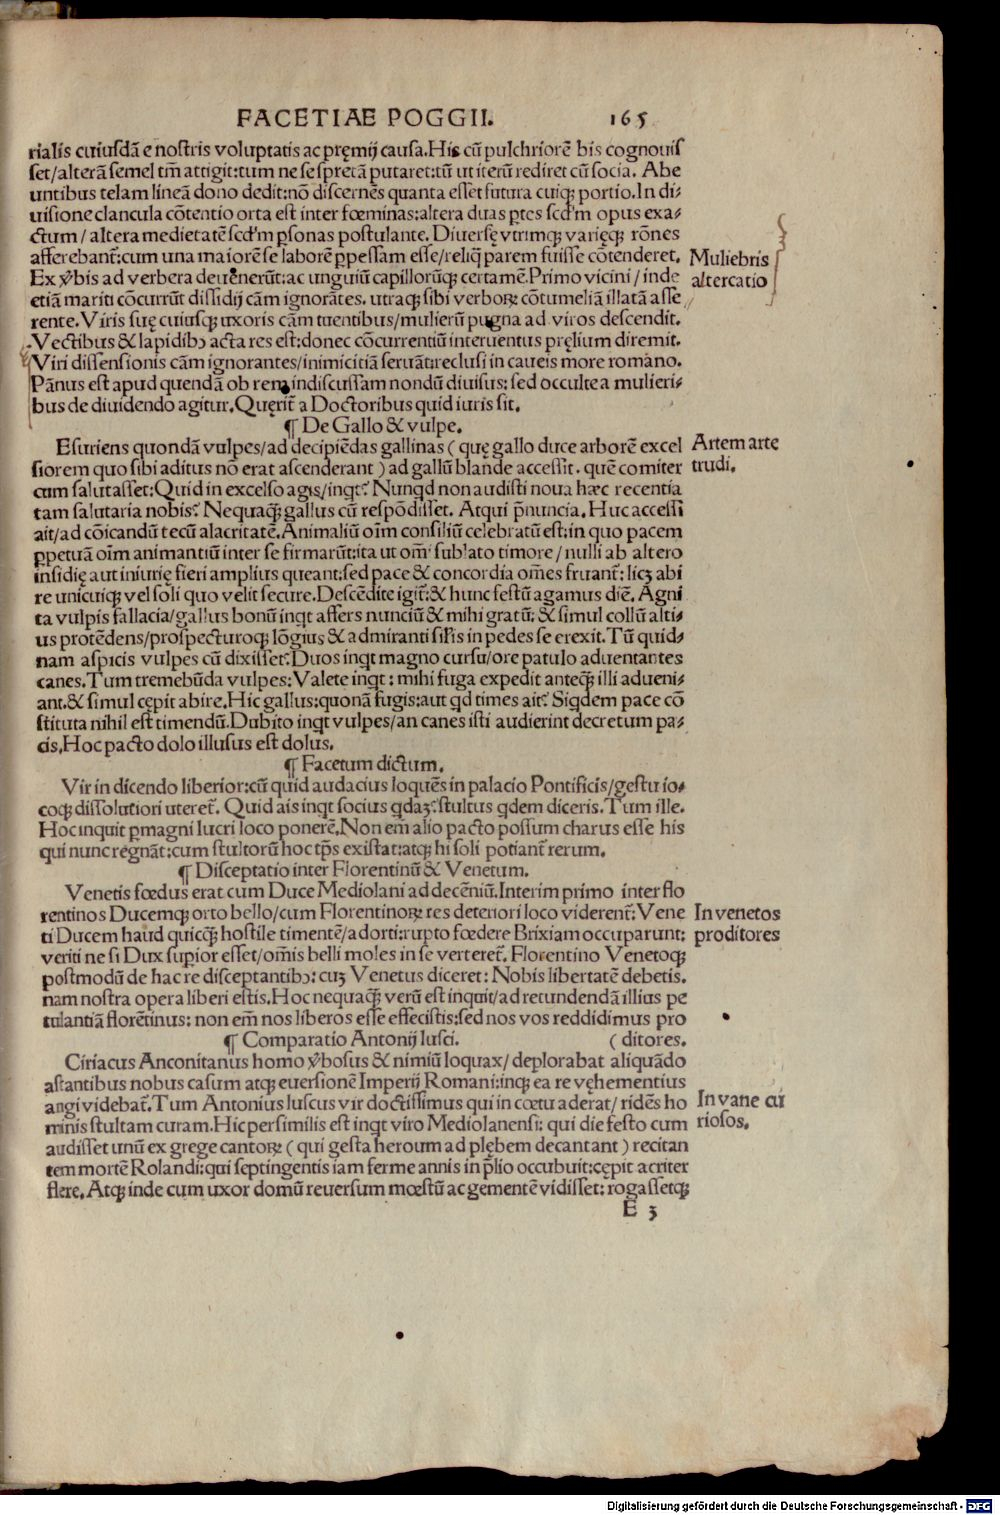 FACETIAE POGGII. 165
rialis cuiusdā e nostris voluptatis ac pręmij causa. His cū pulchriorē bis cognouis
set/alterā semel tm̄ attigit: tum ne se spretā putaret: tū ut iterū rediret cū socia. Abe
untibus telam lineā dono dedit: nō discernēs quanta esset futura cuiq; portio. In di⸗
uisione clancula cōtentio orta est inter fœminas: altera duas p̱tes scd'm opus exa⸗
ctum / altera medietatē scd'm p̱sonas postulante. Diuersę vtrimq; varięq; rōnes
afferebant̄: cum una maiorē se laborē p̱pessam esse/ reliq̄ parem fuisse cōtenderet.
Ex v̄bis ad verbera deuenerūt: ac unguiū capillorūq; certamē. Primo vicini / inde
etiā mariti cōcurrūt dissidij cām ignorātes. utraq; sibi verboꝝ cōtumeliā illatā asse
rente. Viris suę cuiusq; uxoris cām tuentibus/mulierū pugna ad viros descendit.
Vectibus & lapidibꝰ acta res est: donec cōcurrentiū interuentus pręlium diremit.
Viri dissensionis cām ignorantes/inimicitiā seruāt: reclusi in caueis more romano.
Pānus est apud quendā ob rem indiscussam nondū diuisus: sed occulte a mulieri⸗
bus de diuidendo agitur. Quęrit̄ a Doctoribus quid iuris sit.
¶ De Gallo & vulpe.
Esuriens quondā vulpes/ad decipiēdas gallinas ( quę gallo duce arborē excel
siorem quo sibi aditus nō erat ascenderant ) ad gallū blande accessit. quē comiter
cum salutasset: Quid in excelso agis/inqt? Nunqd non audisti noua hæc recentia
tam salutaria nobis? Nequaq̄; gallus cū respōdisset. Atqui p̄nuncia. Huc accessi
ait/ad cōicandū tecū alacritatē. Animaliū oīm consiliū celebratū est: in quo pacem
p̱petuā oīm animantiū inter se firmarūt: ita ut om̄i sublato timore / nulli ab altero
insidię aut iniurię fieri amplius queant: sed pace & concordia om̄es fruant̄: licꝫ abi
re unicuiq; vel soli quo velit secure. Descēdite igit̄: & hunc festū agamus diē. Agni
ta vulpis fallacia/gallus bonū inqt affers nunciū & mihi gratū: & simul collū alti⸗
us protēdens/prospecturoq; lōgius & admiranti sil̄is in pedes se erexit. Tū quid⸗
nam aspicis vulpes cū dixisset? Duos inqt magno cursu/ore patulo aduentantes
canes. Tum tremebūda vulpes: Valete inqt : mihi fuga expedit anteq̄; illi adueni⸗
ant. & simul cępit abire. Hic gallus: quonā fugis: aut qd times ait? Siqdem pace cō
stituta nihil est timendū. Dubito inqt vulpes/an canes isti audierint decretum pa⸗
cis. Hoc pacto dolo illusus est dolus.
¶ Facetum dictum.
Vir in dicendo liberior: cū quid audacius loquēs in palacio Pontificis/gestu io⸗
coq; dissolutiori uteret̄. Quid ais inqt socius qdaꝫ? stultus qdem diceris. Tum ille.
Hoc inquit p̱magni lucri loco ponerē. Non em̄ alio pacto possum charus esse his
qui nunc regnāt: cum stultorū hoc tp̄s existat: atq; hi soli potiant̄ rerum.
¶ Disceptatio inter Florentinū & Venetum.
Venetis fœdus erat cum Duce Mediolani ad decēniū. Interim primo inter flo
rentinos Ducemq; orto bello/cum Florentinoꝝ res deteriori loco viderent̄: Vene
ti Ducem haud quicq̄; hostile timentē/adorti: rupto fœdere Brixiam occuparunt:
veriti ne si Dux sup̱ior esset/om̄is belli moles in se verteret̄. Florentino Venetoq;
postmodū de hac re disceptantibꝰ: cuꝫ Venetus diceret: Nobis libertatē debetis.
nam nostra opera liberi estis. Hoc nequaq̄; verū est inquit/ad retundendā illius pe
tulantiā florētinus: non em̄ nos liberos esse effecistis: sed nos vos reddidimus pro
¶ Comparatio Antonij lusci. ( ditores.
Ciriacus Anconitanus homo v̄bosus & nimiū loquax/ deplorabat aliquādo
astantibus nobus casum atq; euersionē Imperij Romani: inq; ea re vęhementius
angi videbat̄. Tum Antonius luscus vir doctissimus qui in cœtu aderat/ ridēs ho
minis stultam curam. Hic persimilis est inqt viro Mediolanensi: qui die festo cum
audisset unū ex grege cantoꝝ ( qui gesta heroum ad plębem decantant ) recitan
tem mortē Rolandi: qui septingentis iam ferme annis in p̄lio occubuit: cępit acriter
flere. Atq; inde cum uxor domū reuersum mœstū ac gementē vidisset: rogassetq;
E 3
Muliebris
altercatio
Artem arte
trudi.
In venetos
proditores
In vane cu
riosos.
Digitalisierung gefördert durch die Deutsche Forschungsgemeinschaft - DFG